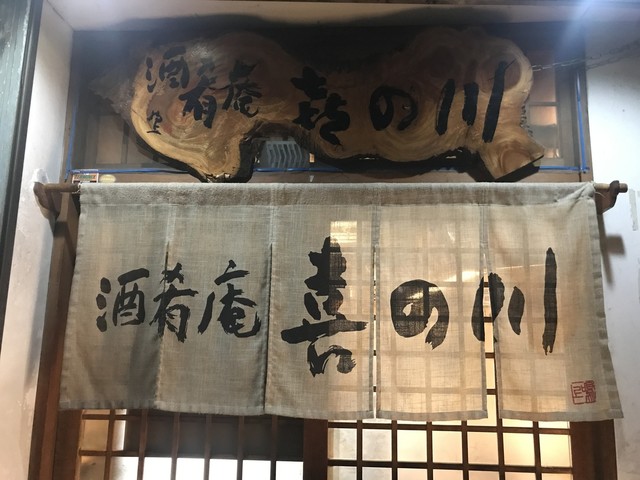 酒肴庵 㐂の川
酒肴庵 喜の川